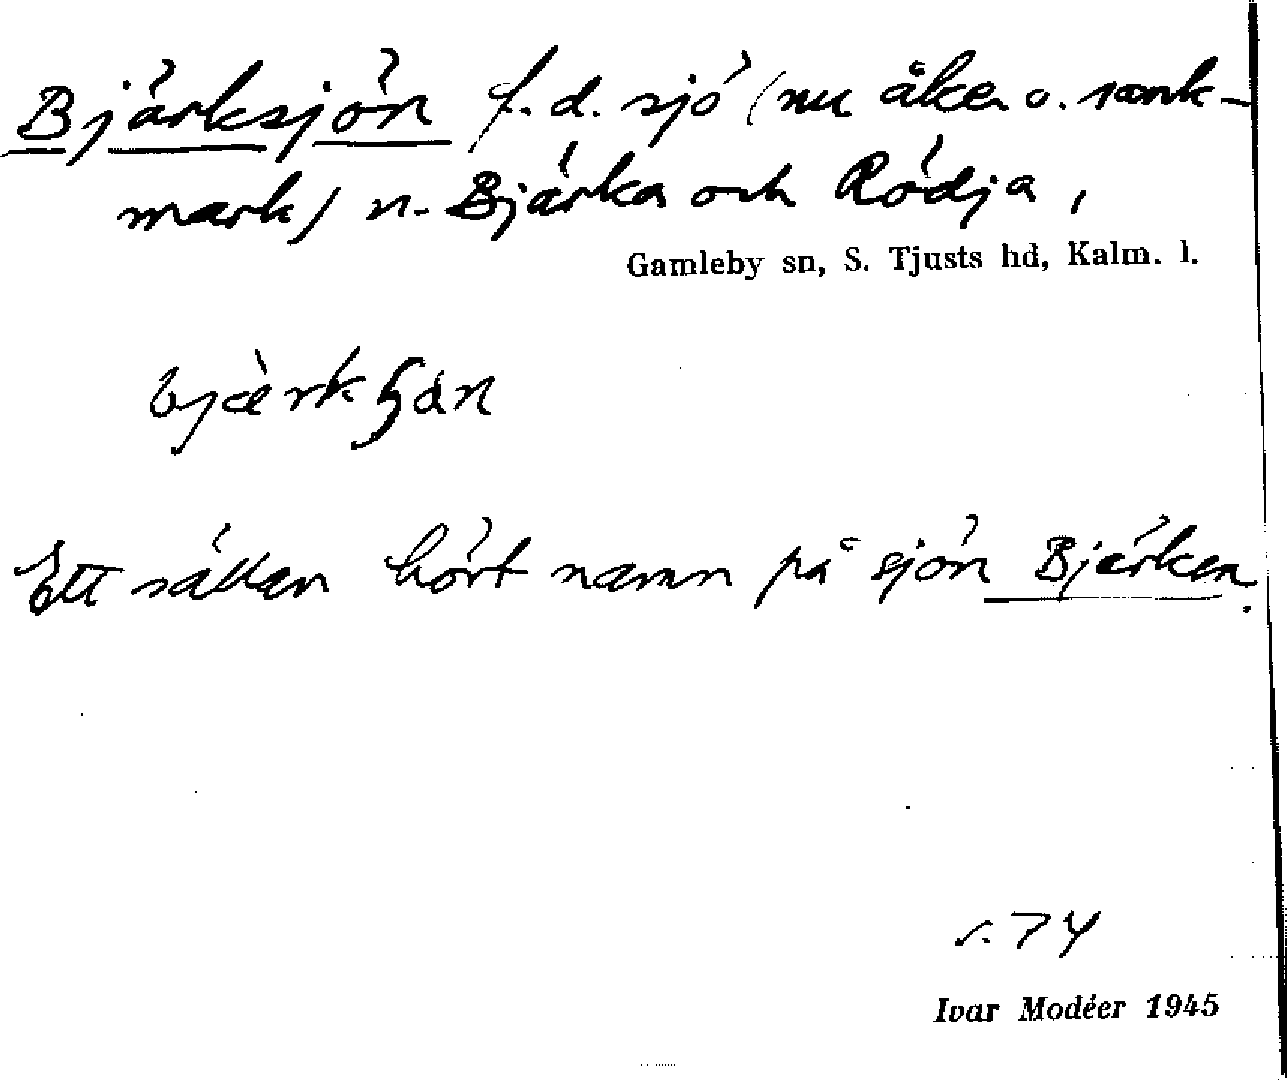 Bjärksjön f.d. sjö (nu åker o. sank-
mark) n. Bjärka och Rödja,
Gamleby sn, S. Tjusts hd, Kalm. l.
Ett sällan hört namn på sjön Bjärken.
s. 74
Ivar Modéer 1945